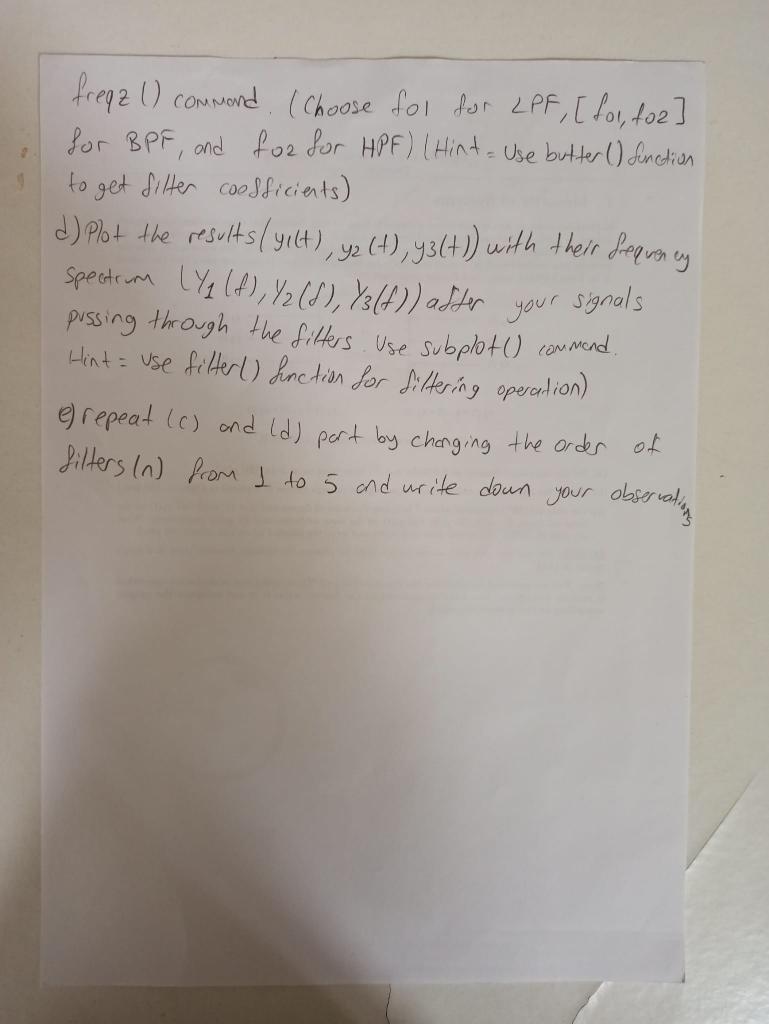 freqz () command. (Choose fo1 for LPF, [fo1, fo2]
for BPF, and fo2 for HPF) (Hint = Use butter() function
to get filter coefficients)
d) Plot the results (y1(t), y2(t), y3(t)) with their frequency
spectrum (Y1(f), Y2(f), Y3(f)) after your signals
pussing through the filters. Use subplot() command.
Hint = use filter() function for filtering operation)
e) repeat (c) and (d) part by changing the order of
filters (n) from 1 to 5 and write down your observations